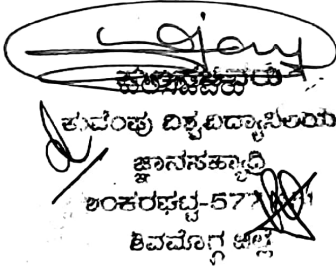 ಕುಲಸಚಿವರು
ಕುವೆಂಪು ವಿಶ್ವವಿದ್ಯಾನಿಲಯ
ಜ್ಞಾನಸಹ್ಯಾದ್ರಿ
ಶಂಕರಘಟ್ಟ-577
ಶಿವಮೊಗ್ಗ ಜಿಲ್ಲೆ